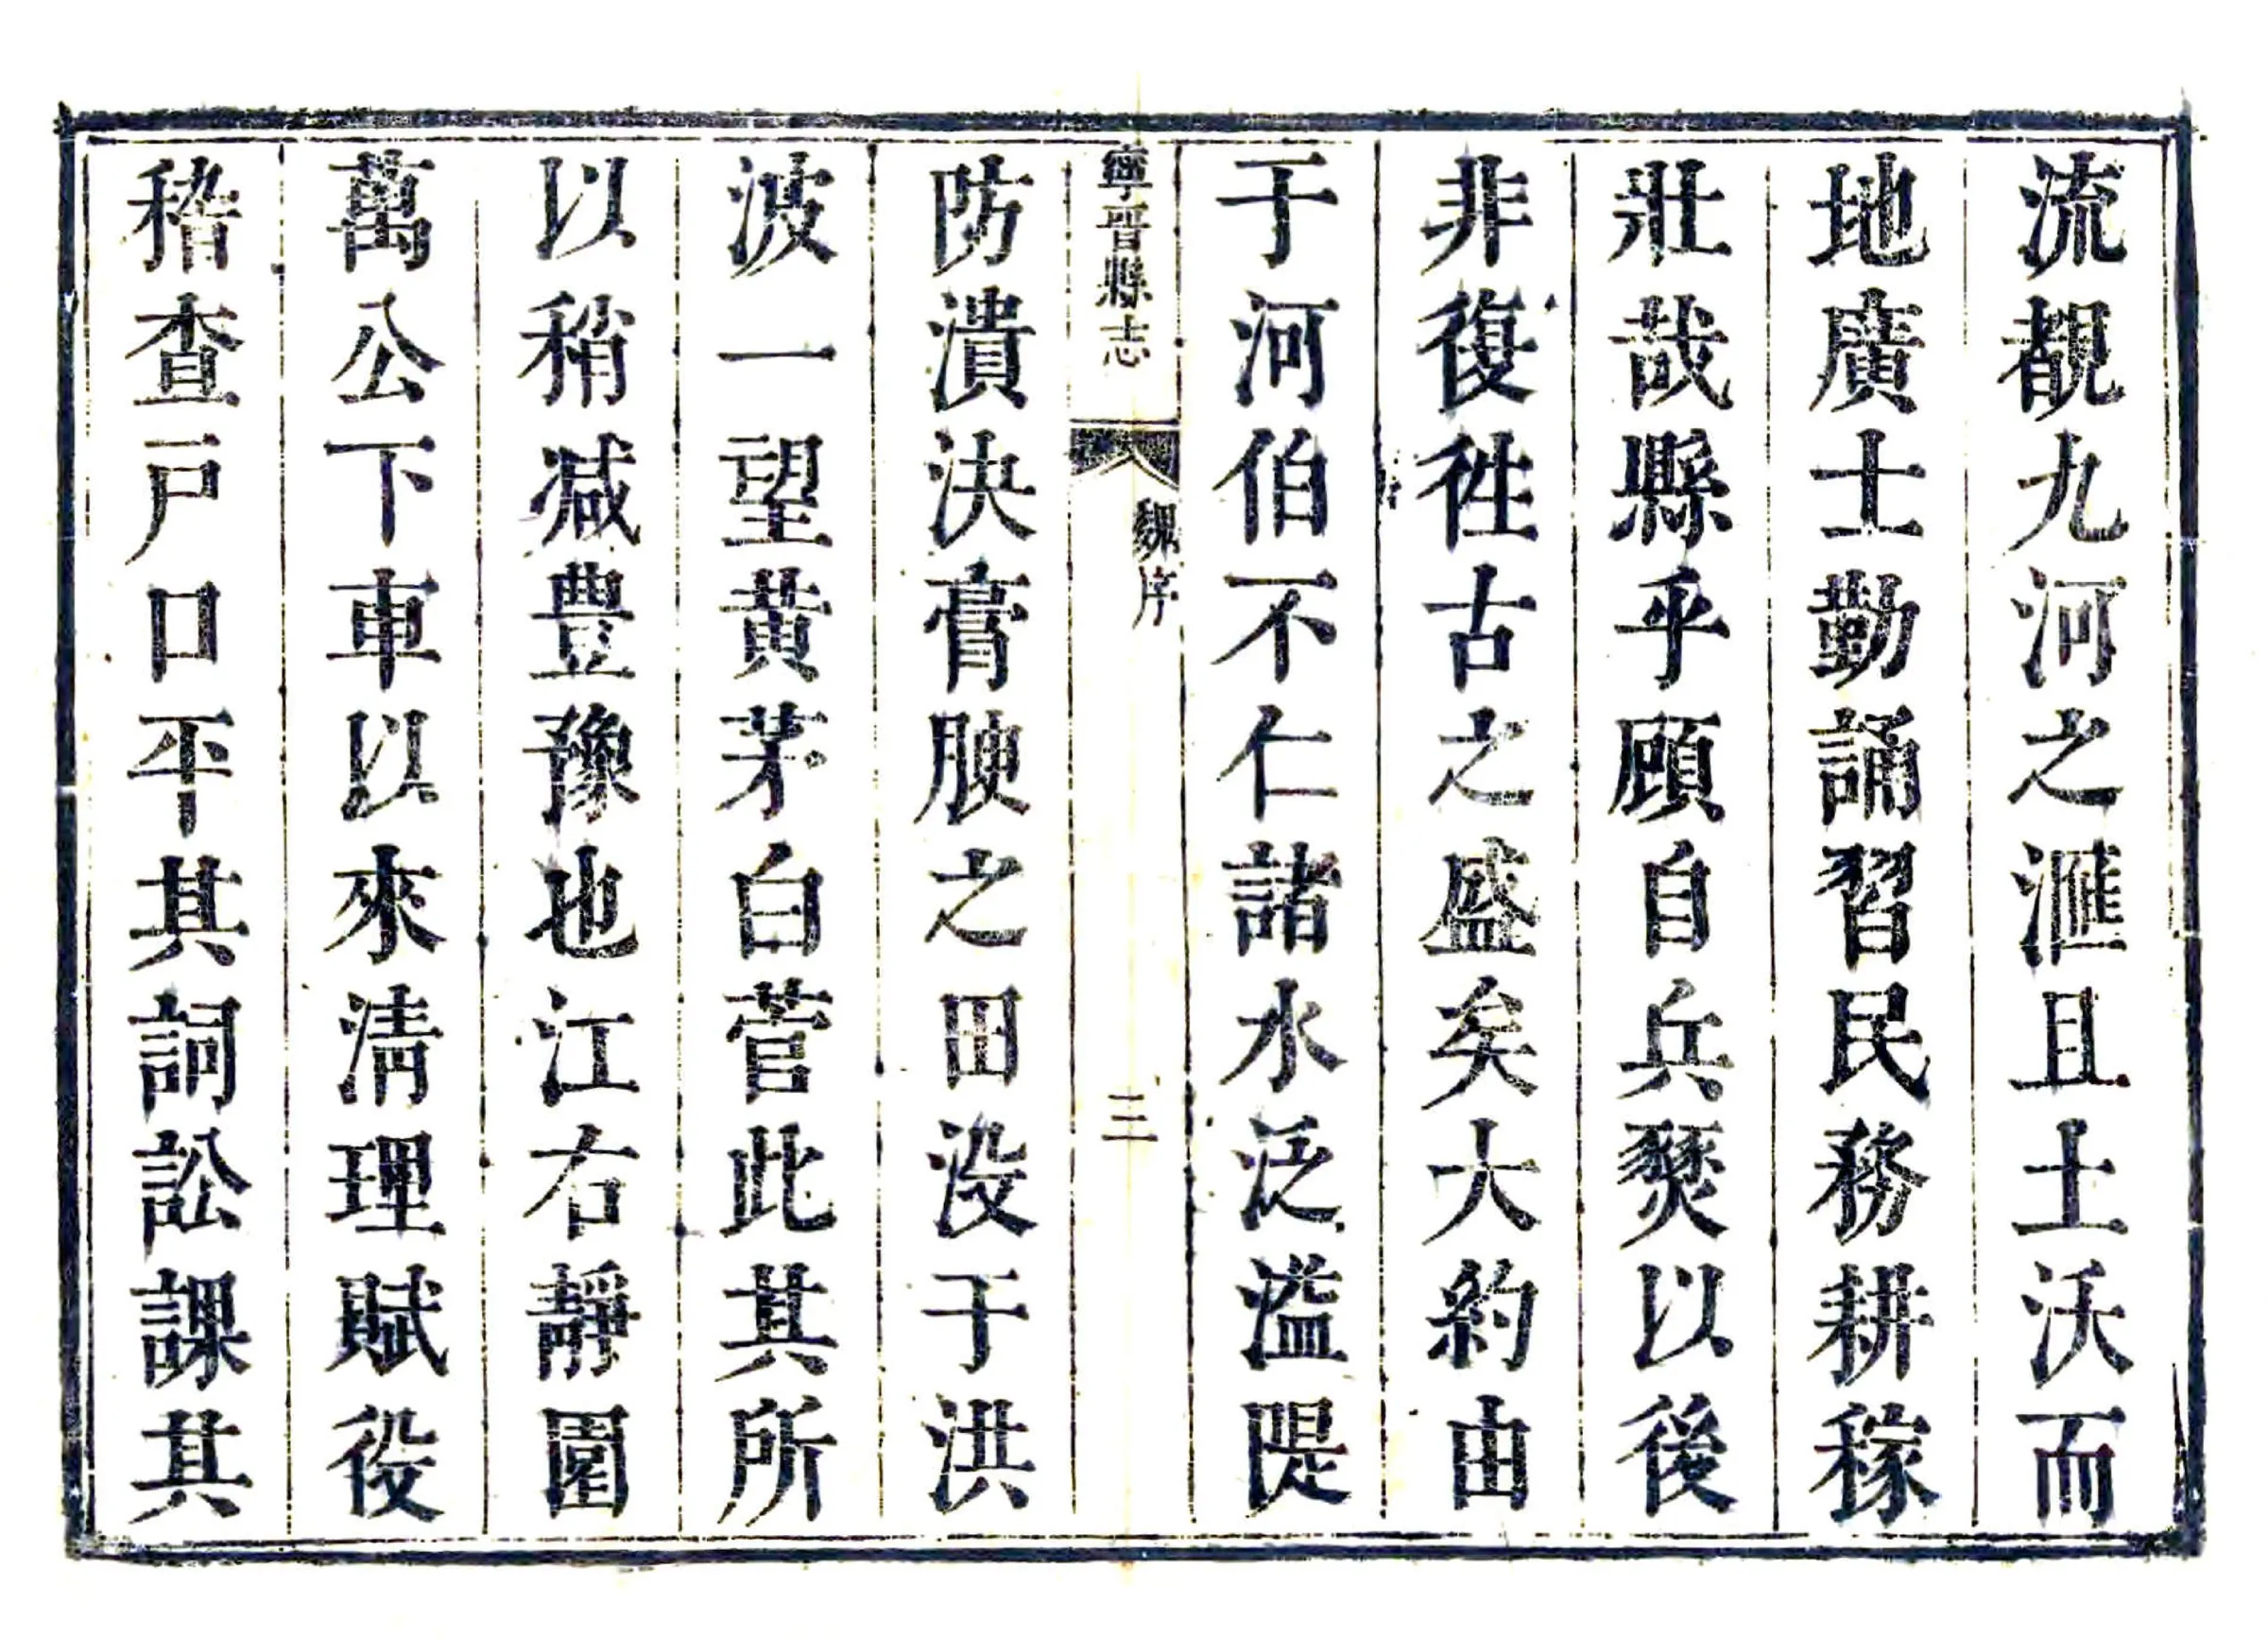 流覩九河之滙且土沃而
地廣士勤誦習民務耕稼
壯哉縣乎顧自兵燹以後
非復徃古之盛矣大約由
于河伯不仁諸水泛溢隄
寧晋縣志 魏序 三
防潰决膏腴之田没于洪
波一望黄茅白菅此其所
以稍减豊豫也江右靜園
萬公下車以來清理賦役
稽查戸口平其詞訟課其